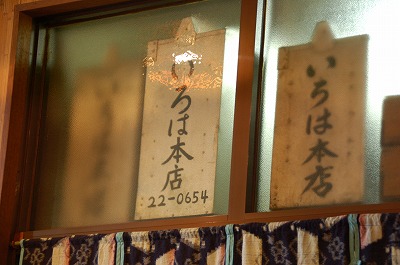 いろは本店
22-0654
いろは本店